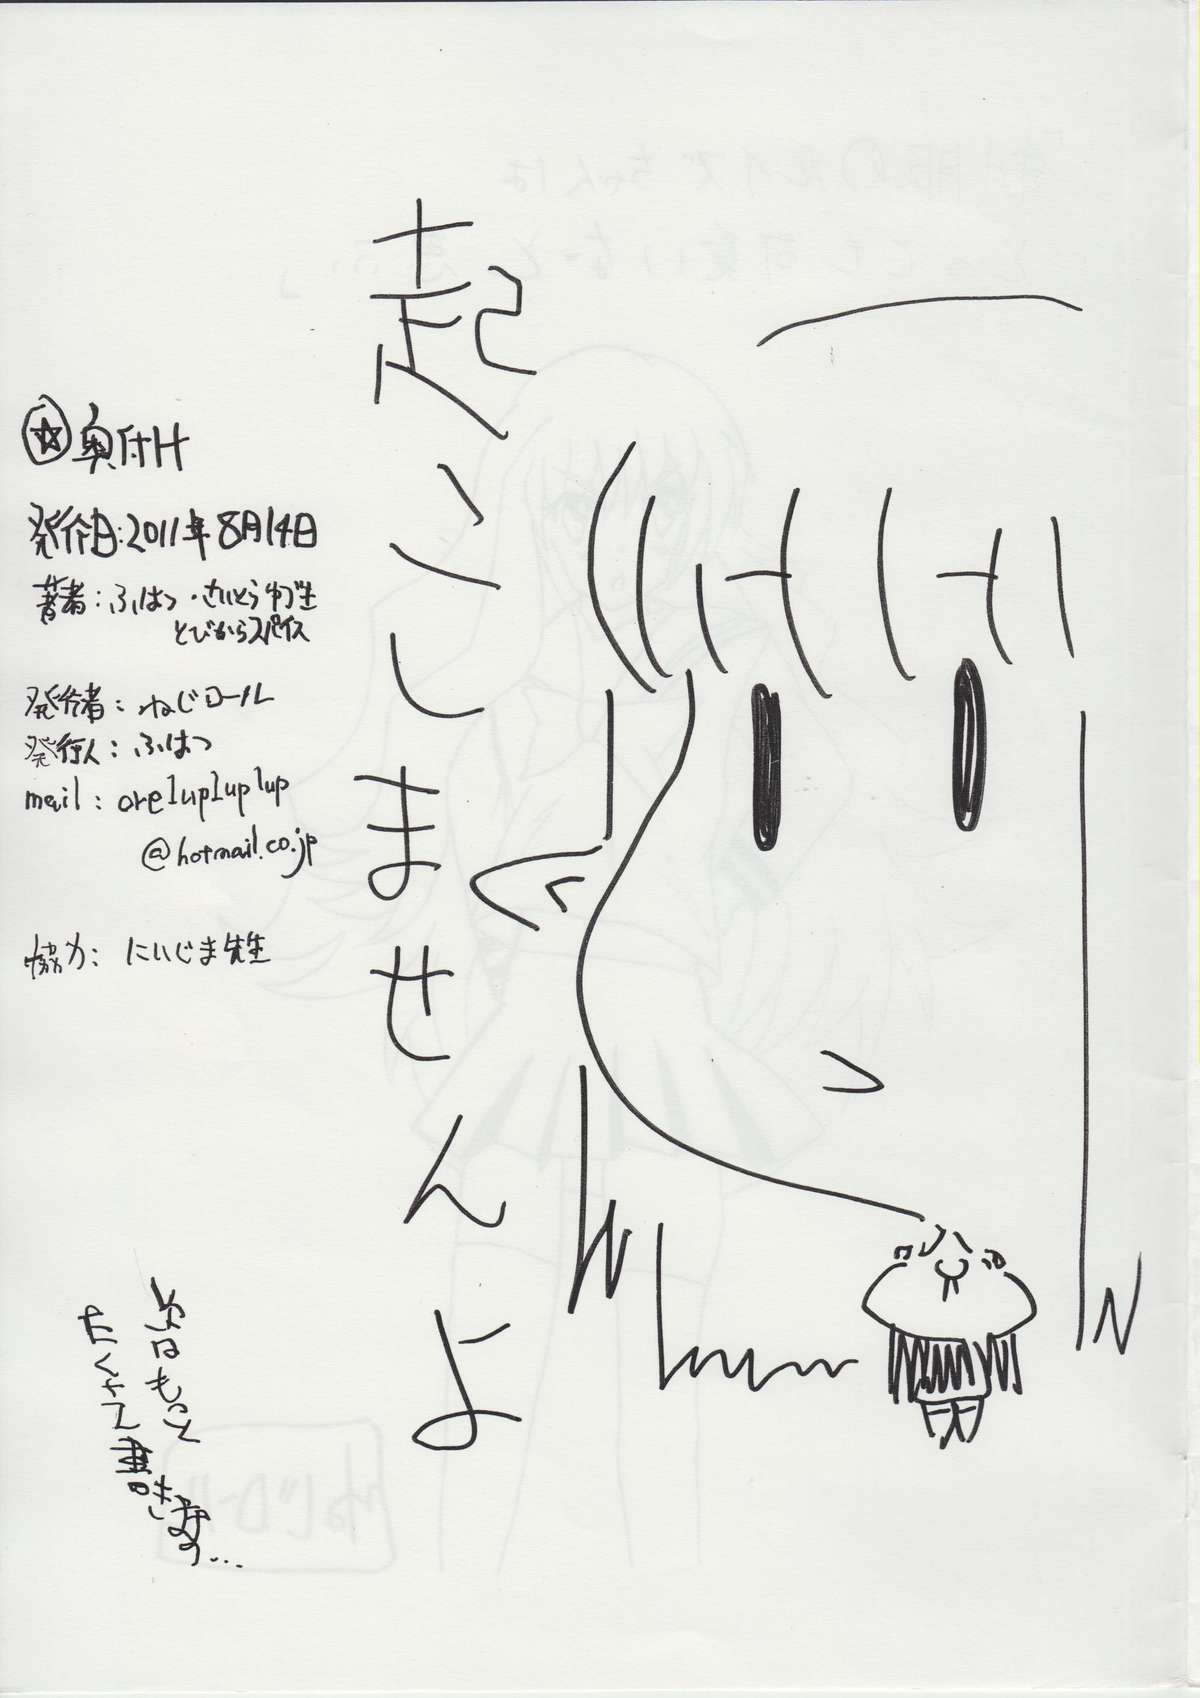 起こしませんよ
奥付け
発行日:2011年8月14日
著者:ふはつ・さいとう弥生
とびからスパイス
発行者:ねじロール
発行人:ふはつ
mail:ore1up1up1up
@hotmail.co.jp
協力:にいじま先生
次はもっと
たくさん書きます…
ねじロール